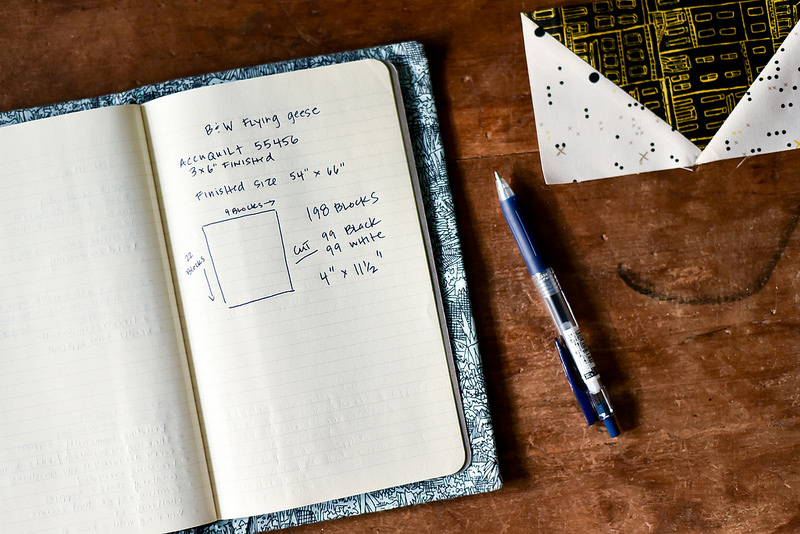 B&W Flying geese
ACCUQUILT 55456
3x6" FINISHED
Finished size 54" x 66"
9 Blocks →
198 BLOCKS
22
Blocks
CUT
99 Black
99 white
4" x 11½"